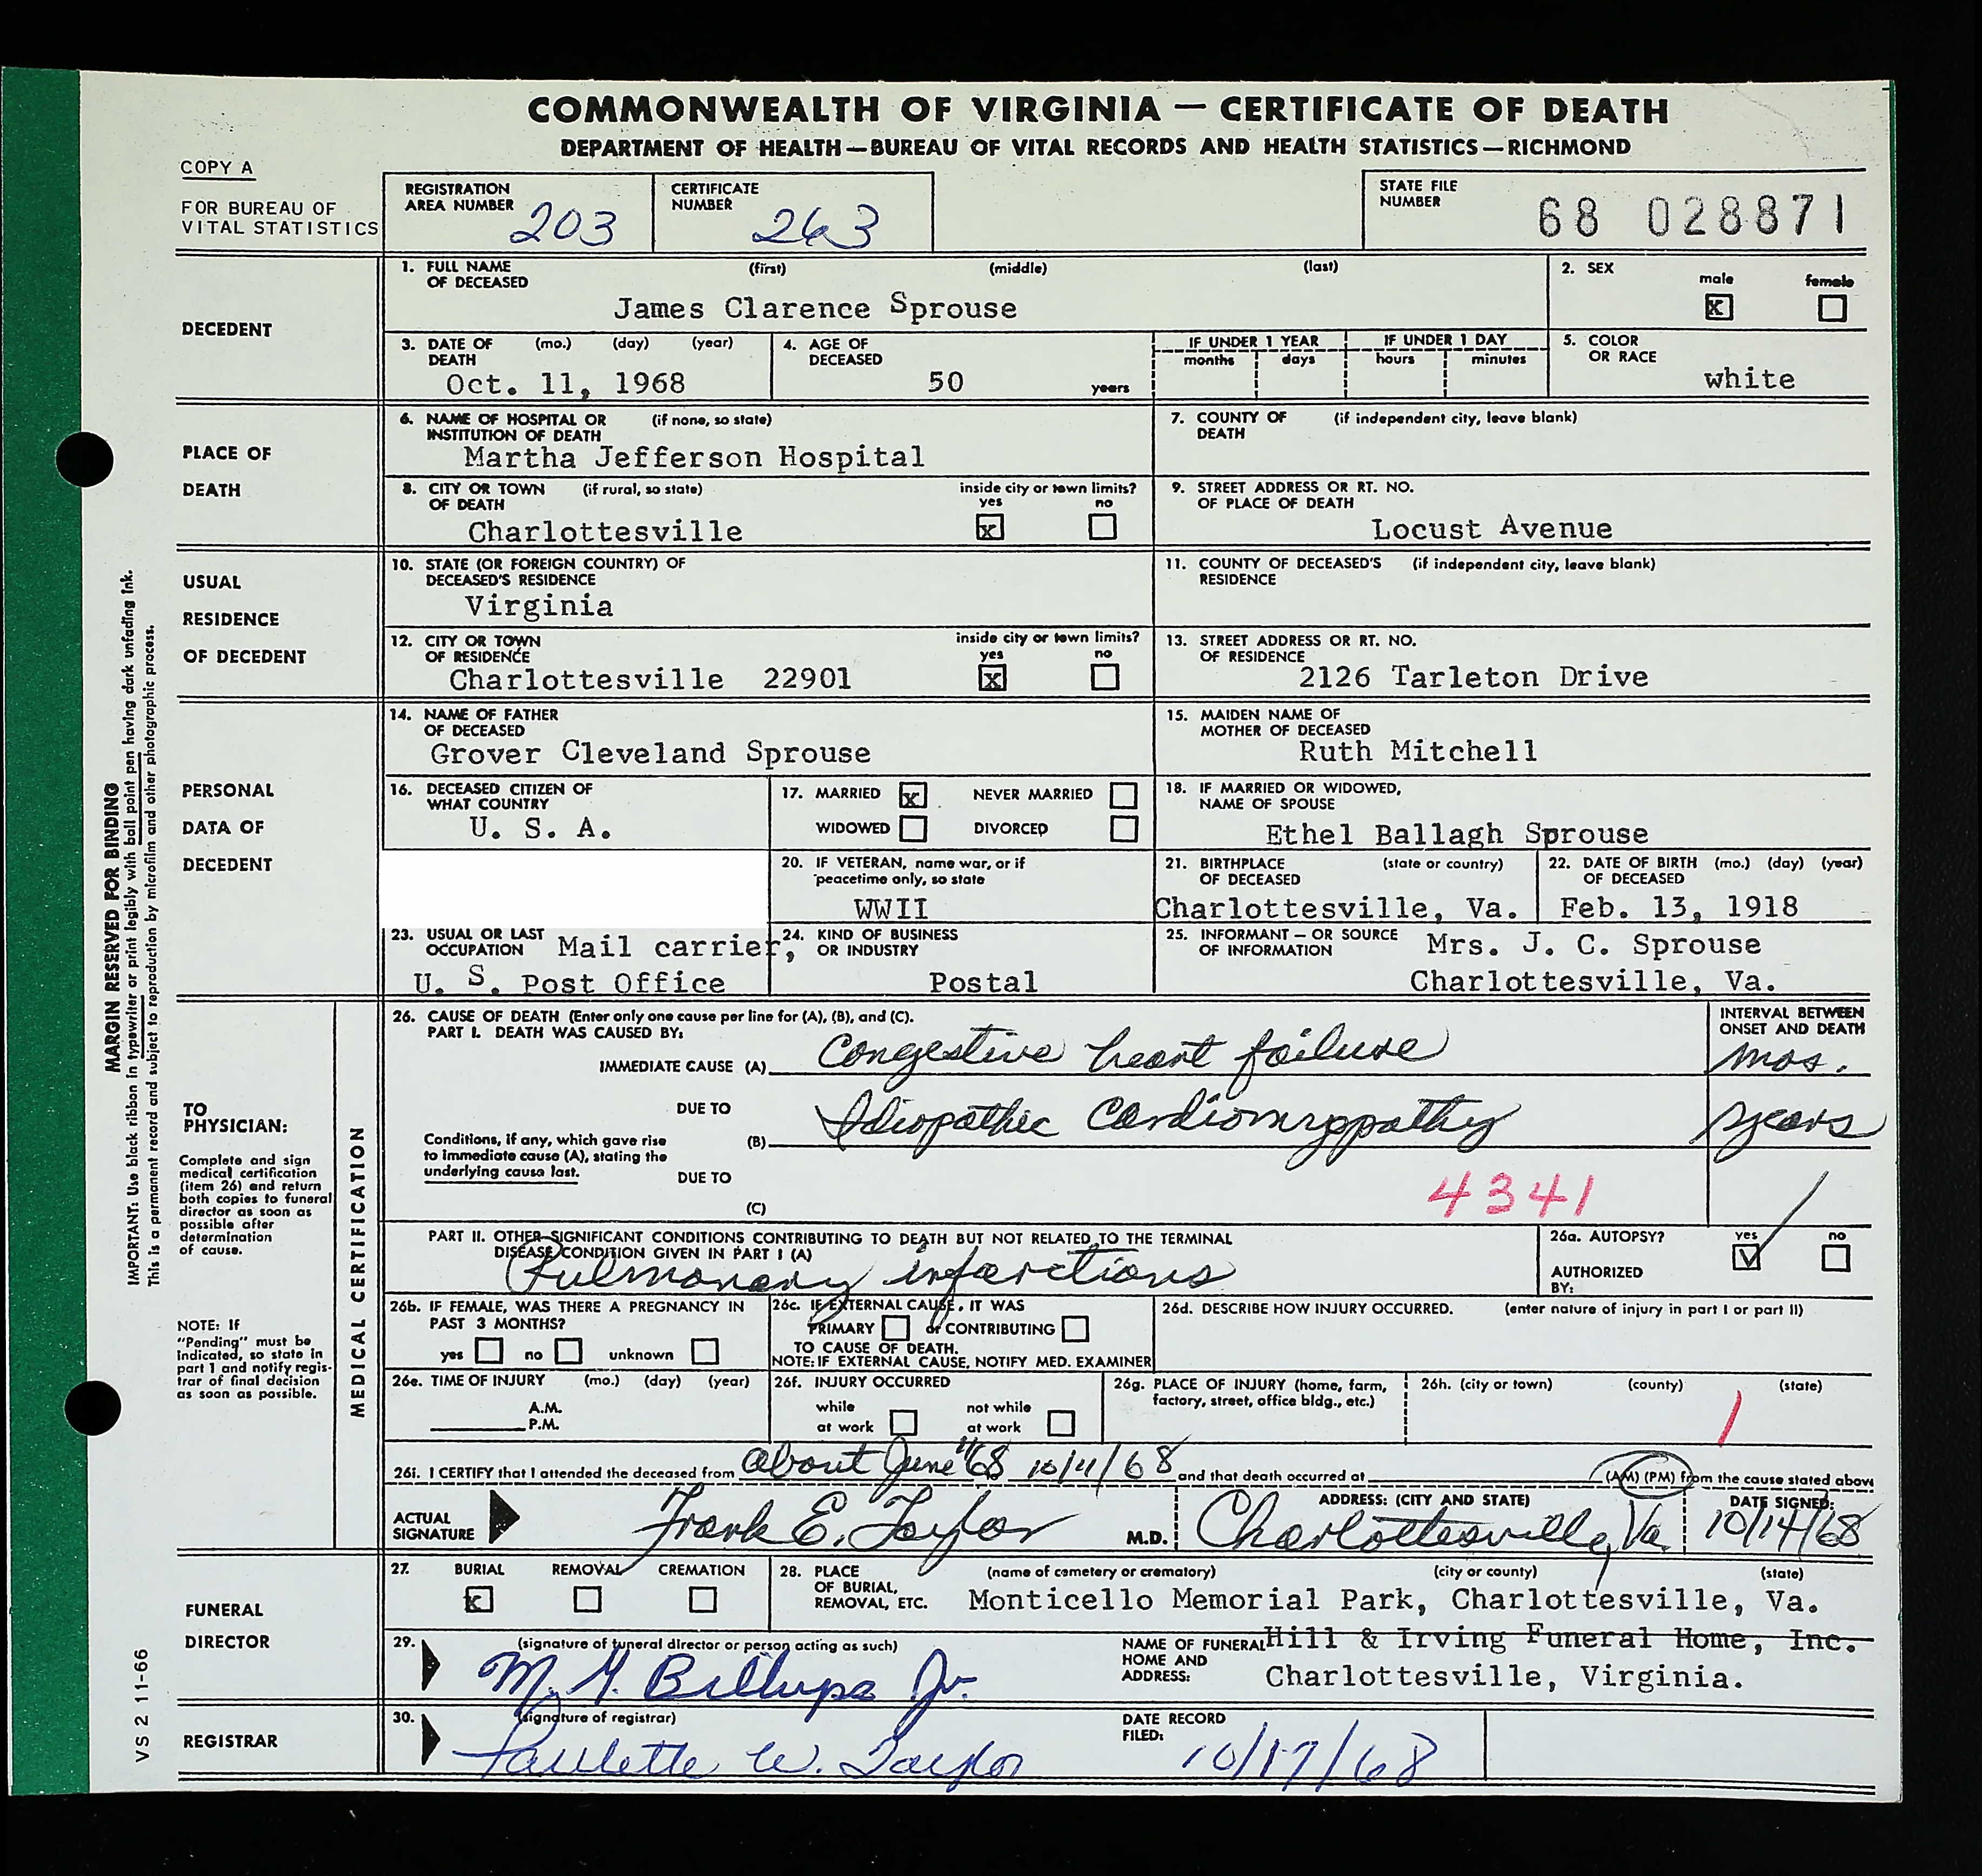 COMMONWEALTH OF VIRGINIA — CERTIFICATE OF DEATH
DEPARTMENT OF HEALTH—BUREAU OF VITAL RECORDS AND HEALTH STATISTICS—RICHMOND
COPY A
FOR BUREAU OF VITAL STATISTICS
REGISTRATION AREA NUMBER 203
CERTIFICATE NUMBER 263
STATE FILE NUMBER 68 028871
DECEDENT
1. FULL NAME OF DECEASED (first) (middle) (last)
James Clarence Sprouse
2. SEX male x female
3. DATE OF DEATH (mo.) (day) (year)
Oct. 11, 1968
4. AGE OF DECEASED 50 years
IF UNDER 1 YEAR months days
IF UNDER 1 DAY hours minutes
5. COLOR OR RACE white
PLACE OF DEATH
6. NAME OF HOSPITAL OR INSTITUTION OF DEATH (if none, so state)
Martha Jefferson Hospital
7. COUNTY OF DEATH (if independent city, leave blank)
8. CITY OR TOWN OF DEATH (if rural, so state)
Charlottesville
inside city or town limits? yes x no
9. STREET ADDRESS OR RT. NO. OF PLACE OF DEATH
Locust Avenue
USUAL RESIDENCE OF DECEDENT
10. STATE (OR FOREIGN COUNTRY) OF DECEASED'S RESIDENCE
Virginia
11. COUNTY OF DECEASED'S RESIDENCE (if independent city, leave blank)
12. CITY OR TOWN OF RESIDENCE
Charlottesville 22901
inside city or town limits? yes x no
13. STREET ADDRESS OR RT. NO. OF RESIDENCE
2126 Tarleton Drive
PERSONAL DATA OF DECEDENT
14. NAME OF FATHER OF DECEASED
Grover Cleveland Sprouse
15. MAIDEN NAME OF MOTHER OF DECEASED
Ruth Mitchell
16. DECEASED CITIZEN OF WHAT COUNTRY
U. S. A.
17. MARRIED x NEVER MARRIED
WIDOWED DIVORCED
18. IF MARRIED OR WIDOWED, NAME OF SPOUSE
Ethel Ballagh Sprouse
20. IF VETERAN, name war, or if peacetime only, so state
WWII
21. BIRTHPLACE OF DECEASED (state or country)
Charlottesville, Va.
22. DATE OF BIRTH OF DECEASED (mo.) (day) (year)
Feb. 13, 1918
23. USUAL OR LAST OCCUPATION Mail carrier,
U. S. Post Office
24. KIND OF BUSINESS OR INDUSTRY
Postal
25. INFORMANT — OR SOURCE OF INFORMATION Mrs. J. C. Sprouse
Charlottesville, Va.
MARGIN RESERVED FOR BINDING
IMPORTANT: Use black ribbon in typewriter or print legibly with ball point pen having dark unfading ink.
This is a permanent record and subject to reproduction by microfilm and other photographic process.
TO PHYSICIAN:
Complete and sign medical certification (item 26) and return both copies to funeral director as soon as possible after determination of cause.
NOTE: If "Pending" must be indicated, so state in part 1 and notify registrar of final decision as soon as possible.
MEDICAL CERTIFICATION
26. CAUSE OF DEATH (Enter only one cause per line for (A), (B), and (C).
PART I. DEATH WAS CAUSED BY:
INTERVAL BETWEEN ONSET AND DEATH
IMMEDIATE CAUSE (A) Congestive heart failure mos.
DUE TO
(B) Idiopathic Cardiomyopathy years
Conditions, if any, which gave rise to immediate cause (A), stating the underlying cause last.
DUE TO
(C)
4341
PART II. OTHER SIGNIFICANT CONDITIONS CONTRIBUTING TO DEATH BUT NOT RELATED TO THE TERMINAL DISEASE CONDITION GIVEN IN PART I (A)
Pulmonary infarctions
26a. AUTOPSY? yes no
AUTHORIZED BY:
26b. IF FEMALE, WAS THERE A PREGNANCY IN PAST 3 MONTHS?
yes no unknown
26c. IF EXTERNAL CAUSE, IT WAS
PRIMARY or CONTRIBUTING
TO CAUSE OF DEATH.
NOTE: IF EXTERNAL CAUSE, NOTIFY MED. EXAMINER
26d. DESCRIBE HOW INJURY OCCURRED. (enter nature of injury in part I or part II)
26e. TIME OF INJURY (mo.) (day) (year)
A.M.
P.M.
26f. INJURY OCCURRED
while at work not while at work
26g. PLACE OF INJURY (home, farm, factory, street, office bldg., etc.)
26h. (city or town) (county) (state)
26i. I CERTIFY that I attended the deceased from About June '68 10/11/68 and that death occurred at (AM) (PM) from the cause stated above
ACTUAL SIGNATURE Frank E. Taylor M.D.
ADDRESS: (CITY AND STATE)
Charlottesville, Va.
DATE SIGNED:
10/14/68
FUNERAL DIRECTOR
27. BURIAL x REMOVAL CREMATION
28. PLACE OF BURIAL, REMOVAL, ETC. (name of cemetery or crematory) (city or county) (state)
Monticello Memorial Park, Charlottesville, Va.
29. (signature of funeral director or person acting as such)
M. G. Billups Jr.
NAME OF FUNERAL HOME AND ADDRESS: Hill & Irving Funeral Home, Inc.
Charlottesville, Virginia.
REGISTRAR
30. (signature of registrar)
Paulette W. Taylor
DATE RECORD FILED: 10/17/68
VS 2 11-66